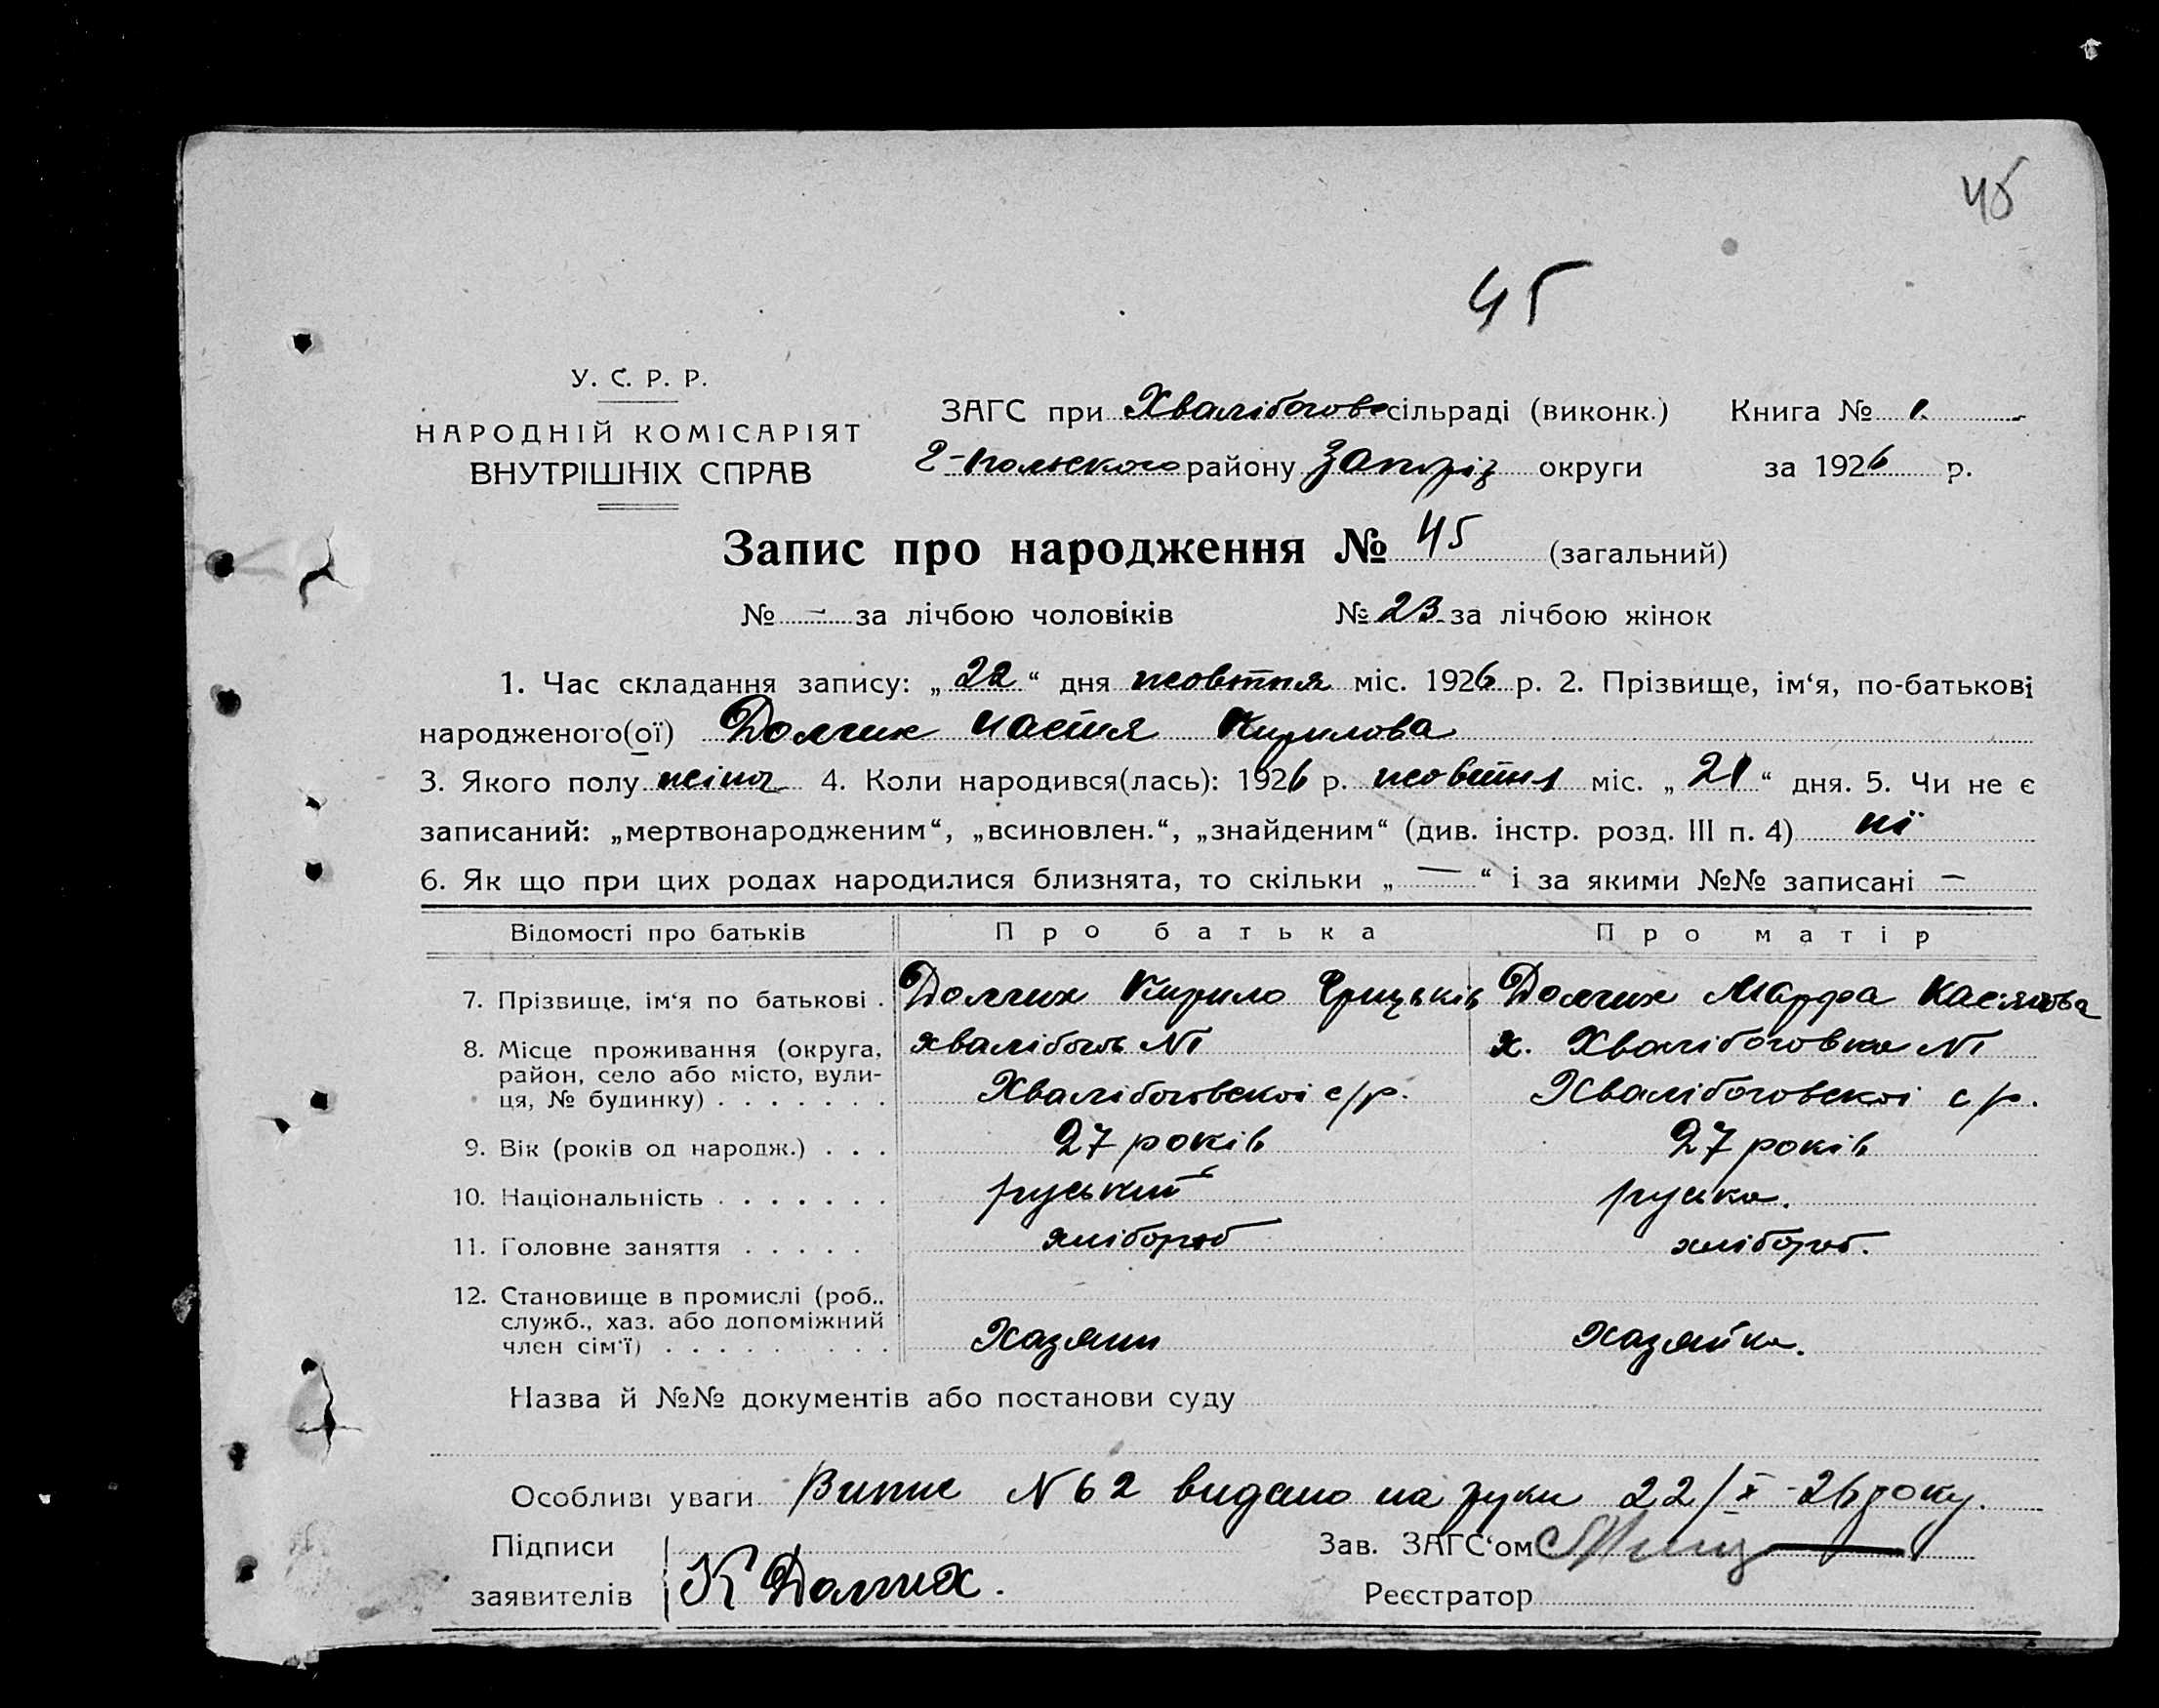 45
45
У. С. Р. Р.
НАРОДНІЙ КОМІСАРІЯТ
ВНУТРІШНІХ СПРАВ
ЗАГС при Хвалібогове сільраді (виконк.) Книга № 1.
Г-польского району Запоріз округи за 1926 р.
Запис про народження № 45 (загальний)
№ — за лічбою чоловіків № 23 за лічбою жінок
1. Час складання запису: „22“ дня жовтня міс. 1926 р. 2. Прізвище, ім‘я, по-батькові
народженого(ої) Долгих Настя Кирилова
3. Якого полу жіноч 4. Коли народився(лась): 1926 р. жовтня міс. „21“ дня. 5. Чи не є
записаний: „мертвонародженим“, „всиновлен.“, „знайденим“ (див. інстр. розд. III п. 4) ні
6. Як що при цих родах народилися близнята, то скільки „—“ і за якими №№ записані —
Відомості про батьків Про батька Про матір
7. Прізвище, ім‘я по батькові . Долгих Кирило Грицьків Долгих Марфа Касіянова
8. Місце проживання (округа, хвалібогов №1 х. Хвалібоговка №1
район, село або місто, вули-
ця, № будинку) . . . . . . . Хвалібоговскоі с/р. Хвалібоговскоі с/р.
9. Вік (років од народж.) . . . 27 років 27 років
10. Національність . . . . . . . руський руська.
11. Головне заняття . . . . . хлібороб хлібороб.
12. Становище в промислі (роб..
служб., хаз. або допоміжний
член сім‘ї) . . . . . . . . . Хазяин Хазяйка.
Назва й №№ документів або постанови суду
Особливі уваги Випис №62 видано на руки 22/X-26 року.
Підписи Зав. ЗАГС‘ом
заявителів К Долгих. Реєстратор